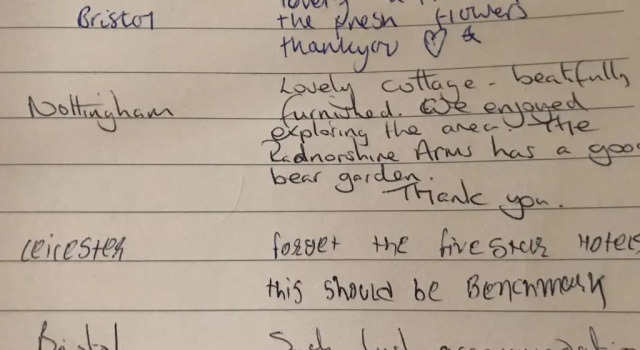 the fresh flowers
Bristol thankyou ♡ &
Lovely cottage - beatfully
Nottingham furnished. We enjoyed
exploring the area. The
Radnorshine Arms has a good
bear garden.
Thank you.
Leicester forget the five Star Hotels
this should be Benchmark
Bristol